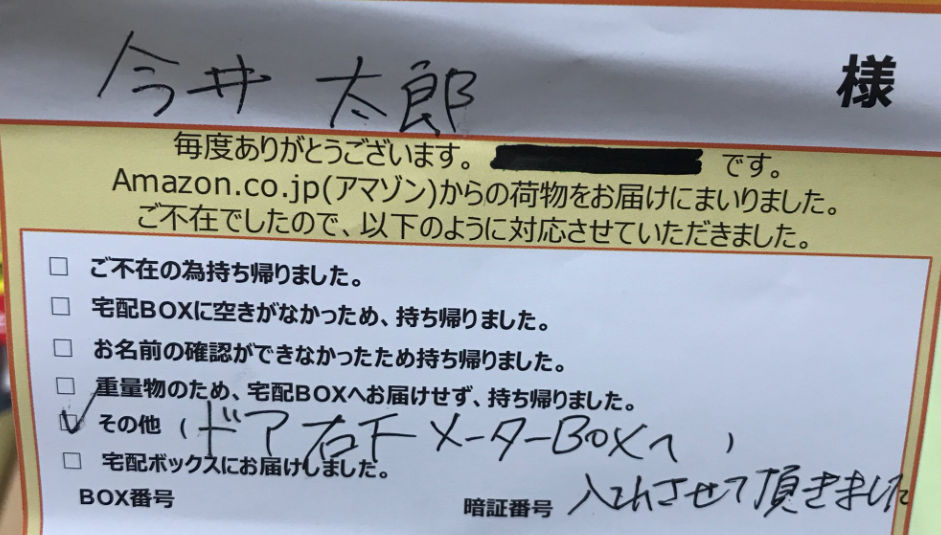 今井 太郎 様
毎度ありがとうございます。 です。
Amazon.co.jp(アマゾン)からの荷物をお届けにまいりました。
ご不在でしたので、以下のように対応させていただきました。
□ ご不在の為持ち帰りました。
□ 宅配BOXに空きがなかっため、持ち帰りました。
□ お名前の確認ができなかったため持ち帰りました。
□ 重量物のため、宅配BOXへお届けせず、持ち帰りました。
☑ その他 (ドア右下メーターBOXへ )
□ 宅配ボックスにお届けしました。
BOX番号 暗証番号 入れさせて頂きました